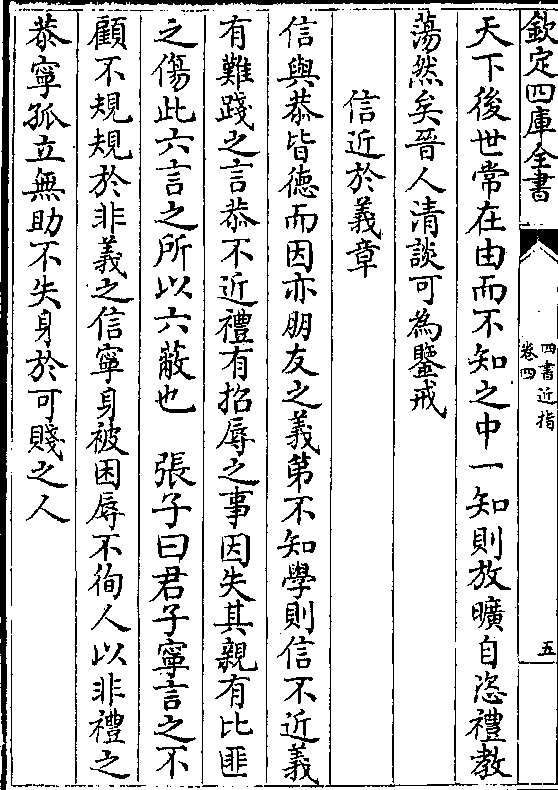 欽定四庫全書
四書近指
卷四
五
天下後世常在由而不知之中一知則放曠自恣禮教
蕩然矣晉人清談可為鑒戒
信近於義章
信與恭皆徳而因亦朋友之義第不知學則信不近義
有難踐之言恭不近禮有招辱之事因失其親有比匪
之傷此六言之所以六蔽也　張子曰君子寧言之不
顧不規規於非義之信寧身被困辱不徇人以非禮之
恭寧孤立無助不失身於可賤之人